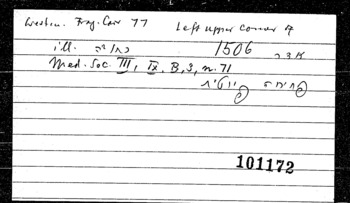 Westm. Frag. Cair 77 Left upper corner of
ill. כתובה 1506 אדר
Med. Soc III, IX, B, 3, n. 71
101172